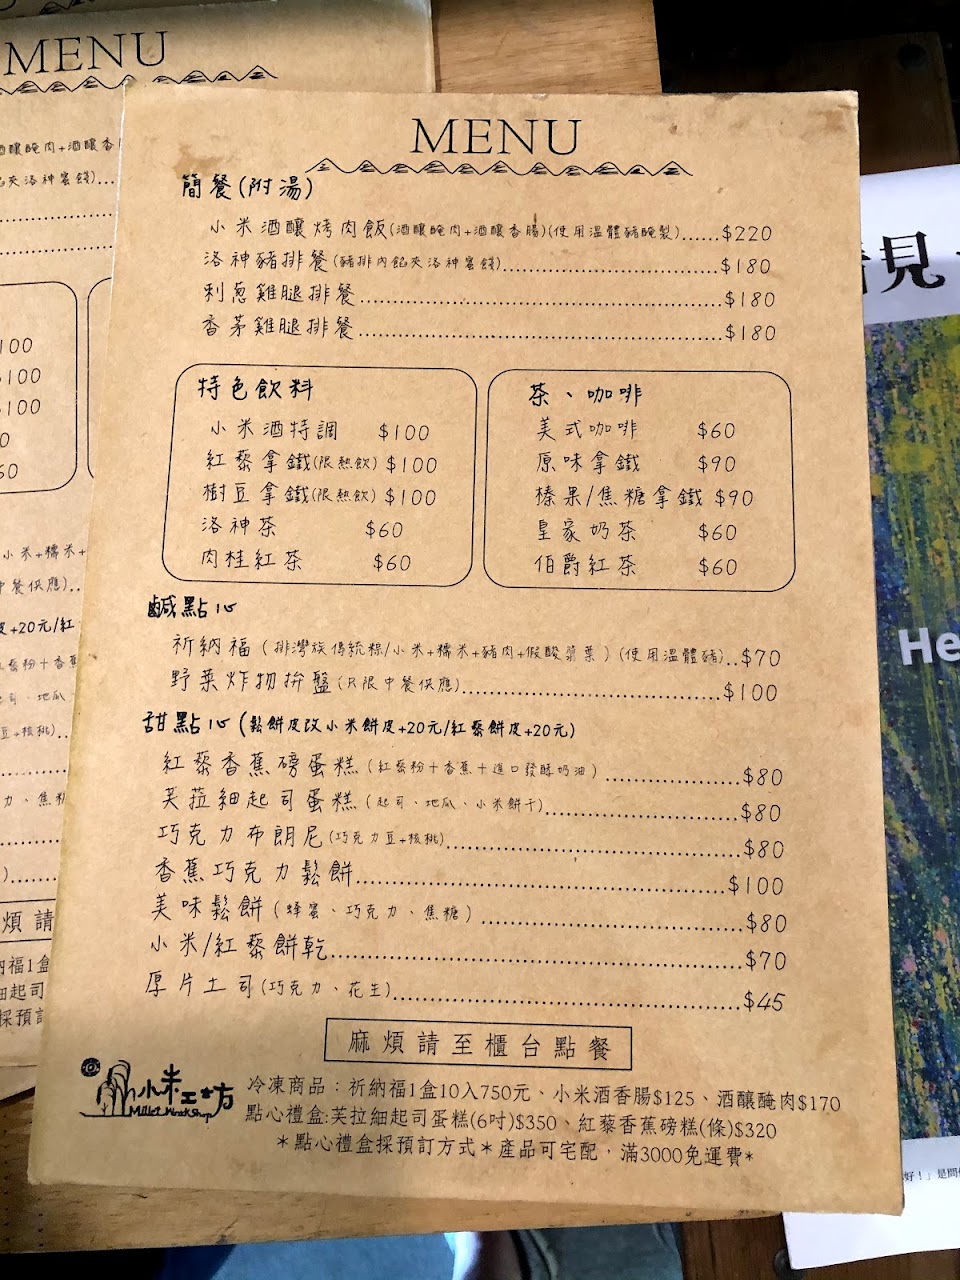 MENU
MENU
簡餐(附湯)
小米酒釀烤肉飯(酒釀醃肉+酒釀香腸)(使用溫體豬醃製)......$220
洛神豬排餐(豬排內餡夾洛神蜜餞)..............................$180
刺蔥雞腿排餐..................................................$180
香茅雞腿排餐..................................................$180
特色飲料
小米酒特調 $100
紅藜拿鐵(限熱飲) $100
樹豆拿鐵(限熱飲) $100
洛神茶 $60
肉桂紅茶 $60
茶、咖啡
美式咖啡 $60
原味拿鐵 $90
榛果/焦糖拿鐵 $90
皇家奶茶 $60
伯爵紅茶 $60
鹹點心
祈納福(排灣族傳統粽/小米+糯米+豬肉+假酸漿葉)(使用溫體豬)..$70
野菜炸物拚盤(只限中餐供應)....................................$100
甜點心(鬆餅皮改小米餅皮+20元/紅藜餅皮+20元)
紅藜香蕉磅蛋糕(紅藜粉+香蕉+進口發酵奶油)..................$80
芙菈細起司蛋糕(起司、地瓜、小米餅干)..........................$80
巧克力布朗尼(巧克力豆+核桃)....................................$80
香蕉巧克力鬆餅..................................................$100
美味鬆餅(蜂蜜、巧克力、焦糖)..................................$80
小米/紅藜餅乾....................................................$70
厚片土司(巧克力、花生)..........................................$45
麻煩請至櫃台點餐
小米工坊
Millet Work Shop
冷凍商品：祈納福1盒10入750元、小米酒香腸$125、酒釀醃肉$170
點心禮盒:芙拉細起司蛋糕(6吋)$350、紅藜香蕉磅糕(條)$320
＊點心禮盒採預訂方式＊產品可宅配，滿3000免運費*
見
He